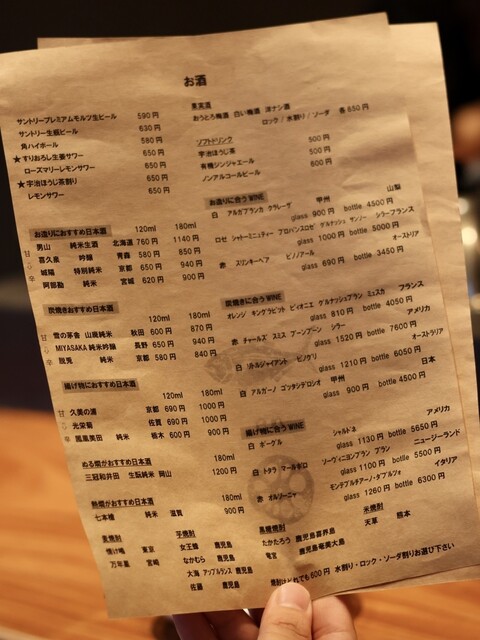 お酒
サントリープレミアムモルツ生ビール 590円
サントリー生豚ビール 630円
角ハイボール 580円
★すりおろし生姜サワー 650円
ローズマリーレモンサワー 650円
★宇治ほうじ茶割り 650円
レモンサワー 650円
果実酒
おうとろ梅酒 白い梅酒 洋ナシ酒
ロック / 水割り / ソーダ 各650円
ソフトドリンク
宇治ほうじ茶 500円
有機ジンジャエール 500円
ノンアルコールビール 600円
お造りにおすすめ日本酒
120ml 180ml
男山 純米生酒 北海道 760円 1140円
喜久泉 吟醸 青森 580円 850円
城陽 特別純米 京都 650円 940円
阿部勘 純米 宮城 620円 900円
甘
辛
炭焼きおすすめ日本酒
120ml 180ml
雪の茅舎 山廃純米 秋田 600円 870円
MIYASAKA 純米吟醸 長野 650円 940円
脱兎 純米 京都 580円 840円
甘
辛
揚げ物におすすめ日本酒
120ml 180ml
久美の浦 京都 690円 1000円
光栄菊 佐賀 690円 1000円
鳳凰美田 純米 栃木 600円 900円
甘
辛
ぬる燗がおすすめ日本酒
180ml
三冠和井田 生酛純米 岡山 1200円
熱燗がおすすめ日本酒
180ml
七本槍 純米 滋賀 900円
お造りに合うWINE
白 アルガブランカ クラレーザ 甲州 山梨
glass 900円 bottle 4500円
ロゼ シャトーミニュティー プロバンスロゼ グルナッシュ サンソー シラー フランス
glass 1000円 bottle 5000円
赤 スリンキーヘア ピノノアール オーストリア
glass 690円 bottle 3450円
炭焼きに合うWINE
オレンジ キングラビット ビィオニエ グルナッシュブラン ミュスカ フランス
glass 810円 bottle 4050円
赤 チャールズ スミス ブーンブーン シラー アメリカ
glass 1520円 bottle 7600円
白 リトルジャイアント ピノグリ オーストラリア
glass 1210円 bottle 6050円
白 アルガーノ ゴッタシデロシオ 甲州 日本
glass 900円 bottle 4500円
揚げ物に合うWINE
白 ボーグル シャルドネ アメリカ
glass 1130円 bottle 5650円
白 トタラ マールボロ ソーヴィニヨンブラン ブラン ニュージーランド
glass 1100円 bottle 5500円
赤 オルソーニャ モンテプルチアーノ・ダブルツォ イタリア
glass 1260円 bottle 6300円
麦焼酎
情け嶋 東京
万年星 宮崎
芋焼酎
女王蜂 鹿児島
なかむら 鹿児島
大海 アップルランス 鹿児島
佐藤 鹿児島
黒糖焼酎
たかたろう 鹿児島喜界島
竜宮 鹿児島奄美大島
米焼酎
天草 熊本
焼酎はどれでも600円 水割り・ロック・ソーダ割りお選び下さい